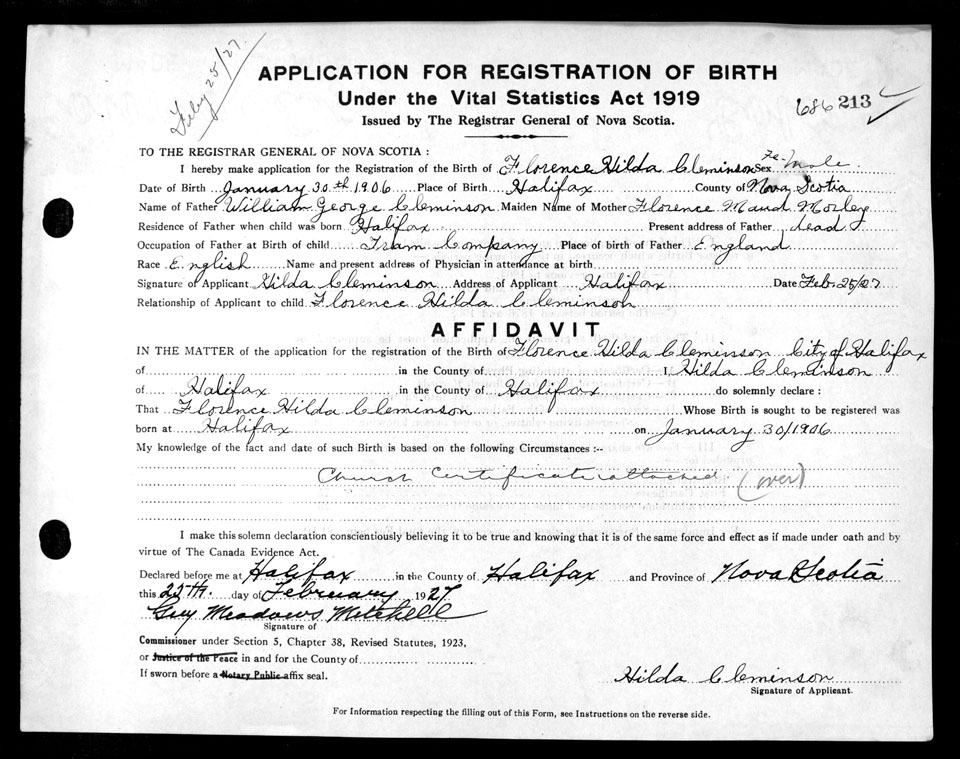 Feby 25/27.
APPLICATION FOR REGISTRATION OF BIRTH
Under the Vital Statistics Act 1919
686 213
Issued by The Registrar General of Nova Scotia.
TO THE REGISTRAR GENERAL OF NOVA SCOTIA :
I hereby make application for the Registration of the Birth of Florence Hilda Cleminson Sex Fe-male.
Date of Birth January 30th 1906 Place of Birth Halifax County of Nova Scotia
Name of Father William George Cleminson Maiden Name of Mother Florence Maud Morley
Residence of Father when child was born Halifax Present address of Father dead
Occupation of Father at Birth of child Tram Company Place of birth of Father England
Race English Name and present address of Physician in attendance at birth
Signature of Applicant Hilda Cleminson Address of Applicant Halifax Date Feb. 25/27
Relationship of Applicant to child Florence Hilda Cleminson
AFFIDAVIT
IN THE MATTER of the application for the registration of the Birth of Florence Hilda Cleminson City of Halifax
of in the County of I, Hilda Cleminson
of Halifax in the County of Halifax do solemnly declare :
That Florence Hilda Cleminson Whose Birth is sought to be registered was
born at Halifax on January 30/1906
My knowledge of the fact and date of such Birth is based on the following Circumstances :--
Church Certificate attached (over)
I make this solemn declaration conscientiously believing it to be true and knowing that it is of the same force and effect as if made under oath and by
virtue of The Canada Evidence Act.
Declared before me at Halifax in the County of Halifax and Province of Nova Scotia
this 25TH. day of February 1927
Guy Meadows Mitchell
Signature of
Commissioner under Section 5, Chapter 38, Revised Statutes, 1923,
or Justice of the Peace in and for the County of
If sworn before a Notary Public affix seal.
Hilda Cleminson
Signature of Applicant.
For Information respecting the filling out of this Form, see Instructions on the reverse side.